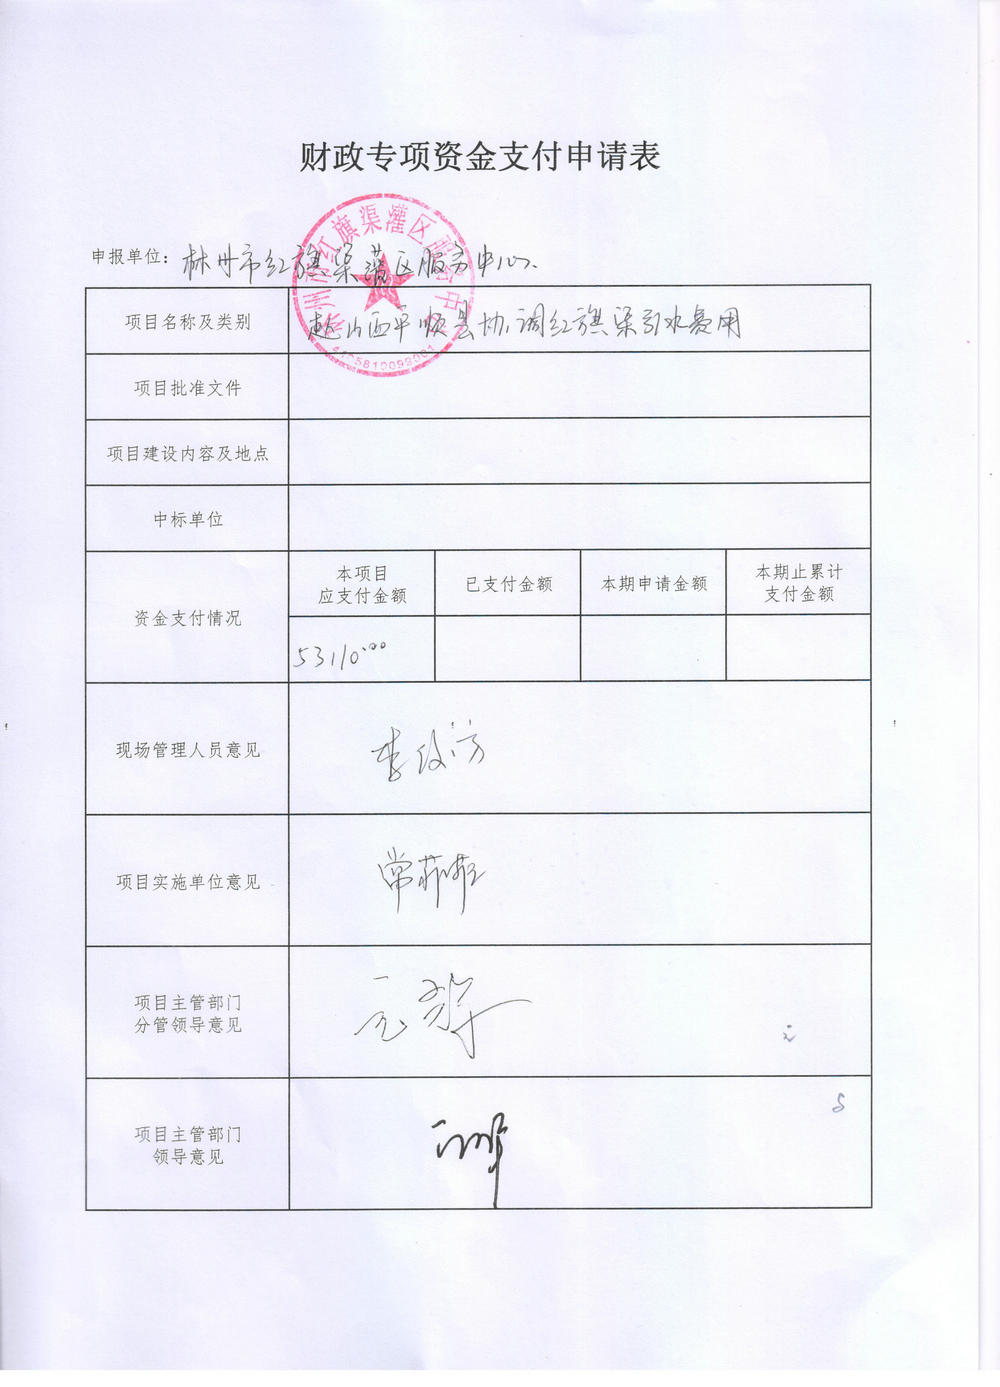 财政专项资金支付申请表
林州市红旗渠灌区服务中心
申报单位：林州市红旗渠灌区服务中心.
项目名称及类别
赴山西平顺县协调红旗渠引水费用
项目批准文件
项目建设内容及地点
中标单位
资金支付情况
本项目
应支付金额
已支付金额
本期申请金额
本期止累计
支付金额
53110.00
现场管理人员意见
项目实施单位意见
常菲菲
项目主管部门
分管领导意见
项目主管部门
领导意见